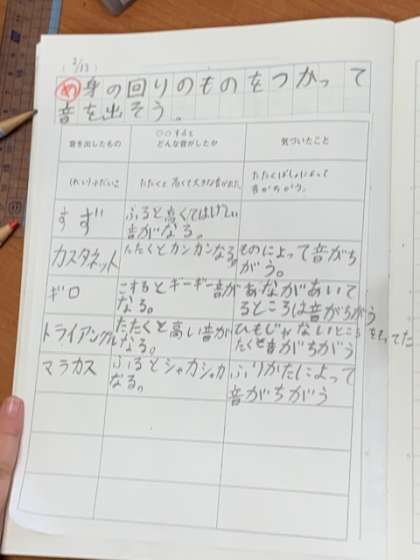 (2/13)
め 身の回りのものをつかって
音を出そう。
音を出したもの
○○すると
どんな音がしたか
気づいたこと
(れい)小だいこ
たたくと高くて大きな音が出た
たたくばしょによって
音がちがう。
すず
ふると高くてはげしい
音がなる。
カスタネット
たたくとカンカンなる。
ものによって音がち
がう。
ギロ
こするとギーギー音が
なる。
あながあいて
るところは音がちがう
トライアングル
たたくと高い音が
なる。
ひもじゃないところをもってた
たくと音がちがう
マラカス
ふるとシャカシャカ
なる。
ふりかたによって
音がちがう